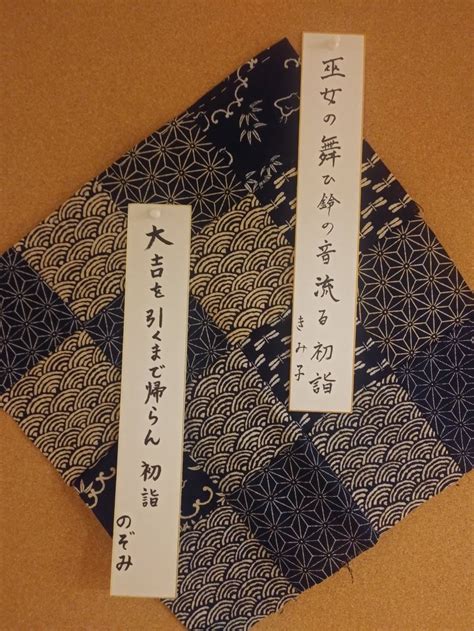 巫女の舞ひ鈴の音流る初詣
きみ子
大吉を引くまで帰らん初詣
のぞみ